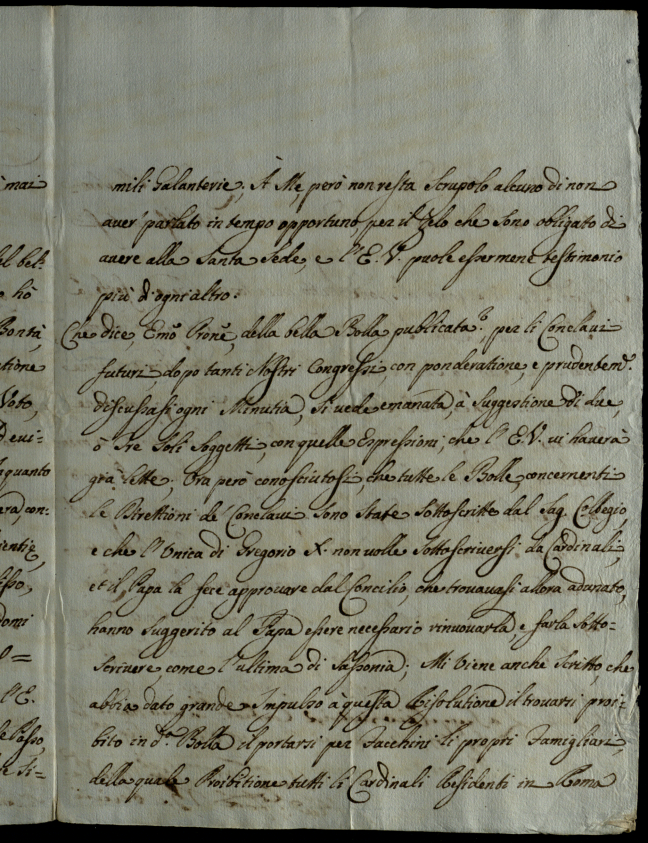 mai
mili Galanterie; À Me, però non resta scrupolo alcuno di non
aver' parlato in tempo opportuno per il Zelo che sono obligato di
el bel:
avere alla Santa Sede, e l'E. V. puole essermene testimonio
hò
più d'ogni altro:
Bontà,
Che dice, Emo Prone, della bella Bolla publicata, per li Conclavi
atione
futuri dopo tanti Nostri Congressi, con ponderatione, e prudentemte
Voto,
discussasi ogni Minutia, si vede emanata, à suggestione di due,
evi=
ò Tre soli soggetti, con quelle Espressioni, che l'E. V. vi haverà
quanto
già lette; Ora però conosciutosi, che tutte le Bolle, concernenti
era, con:
le Direttioni de' Conclavi sono state sottoscritte dal Sag. Collegio,
ientie,
e che l'Unica di Gregorio X. non volle sottoscriversi da Cardinali,
et il Papa la fece approvare dal Concilio, che trovavasi allora adunato,
domi
hanno suggerito al Papa essere necessario rinuovarla, e farla sotto=
scrivere, come l'ultima di Sassonia; Mi viene anche scritto, che
l'E.
abbia dato grande Impulso à questa Risolutione il trovarsi proi=
le Passo,
bito in da. Bolla il portarsi per Facchini li propri Famigliari,
e si=
della quale Proibitione tutti li Cardinali Residenti in Roma